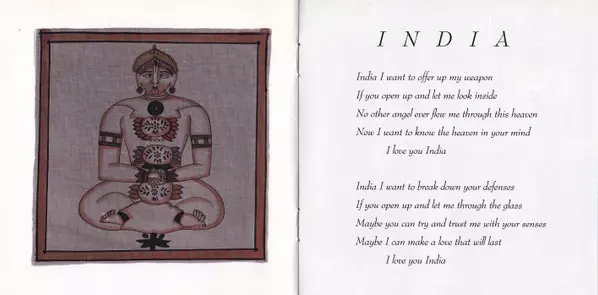 INDIA
India I want to offer up my weapon
If you open up and let me look inside
No other angel ever flew me through this heaven
Now I want to know the heaven in your mind
I love you India
India I want to break down your defenses
If you open up and let me through the glass
Maybe you can try and trust me with your senses
Maybe I can make a love that will last
I love you India